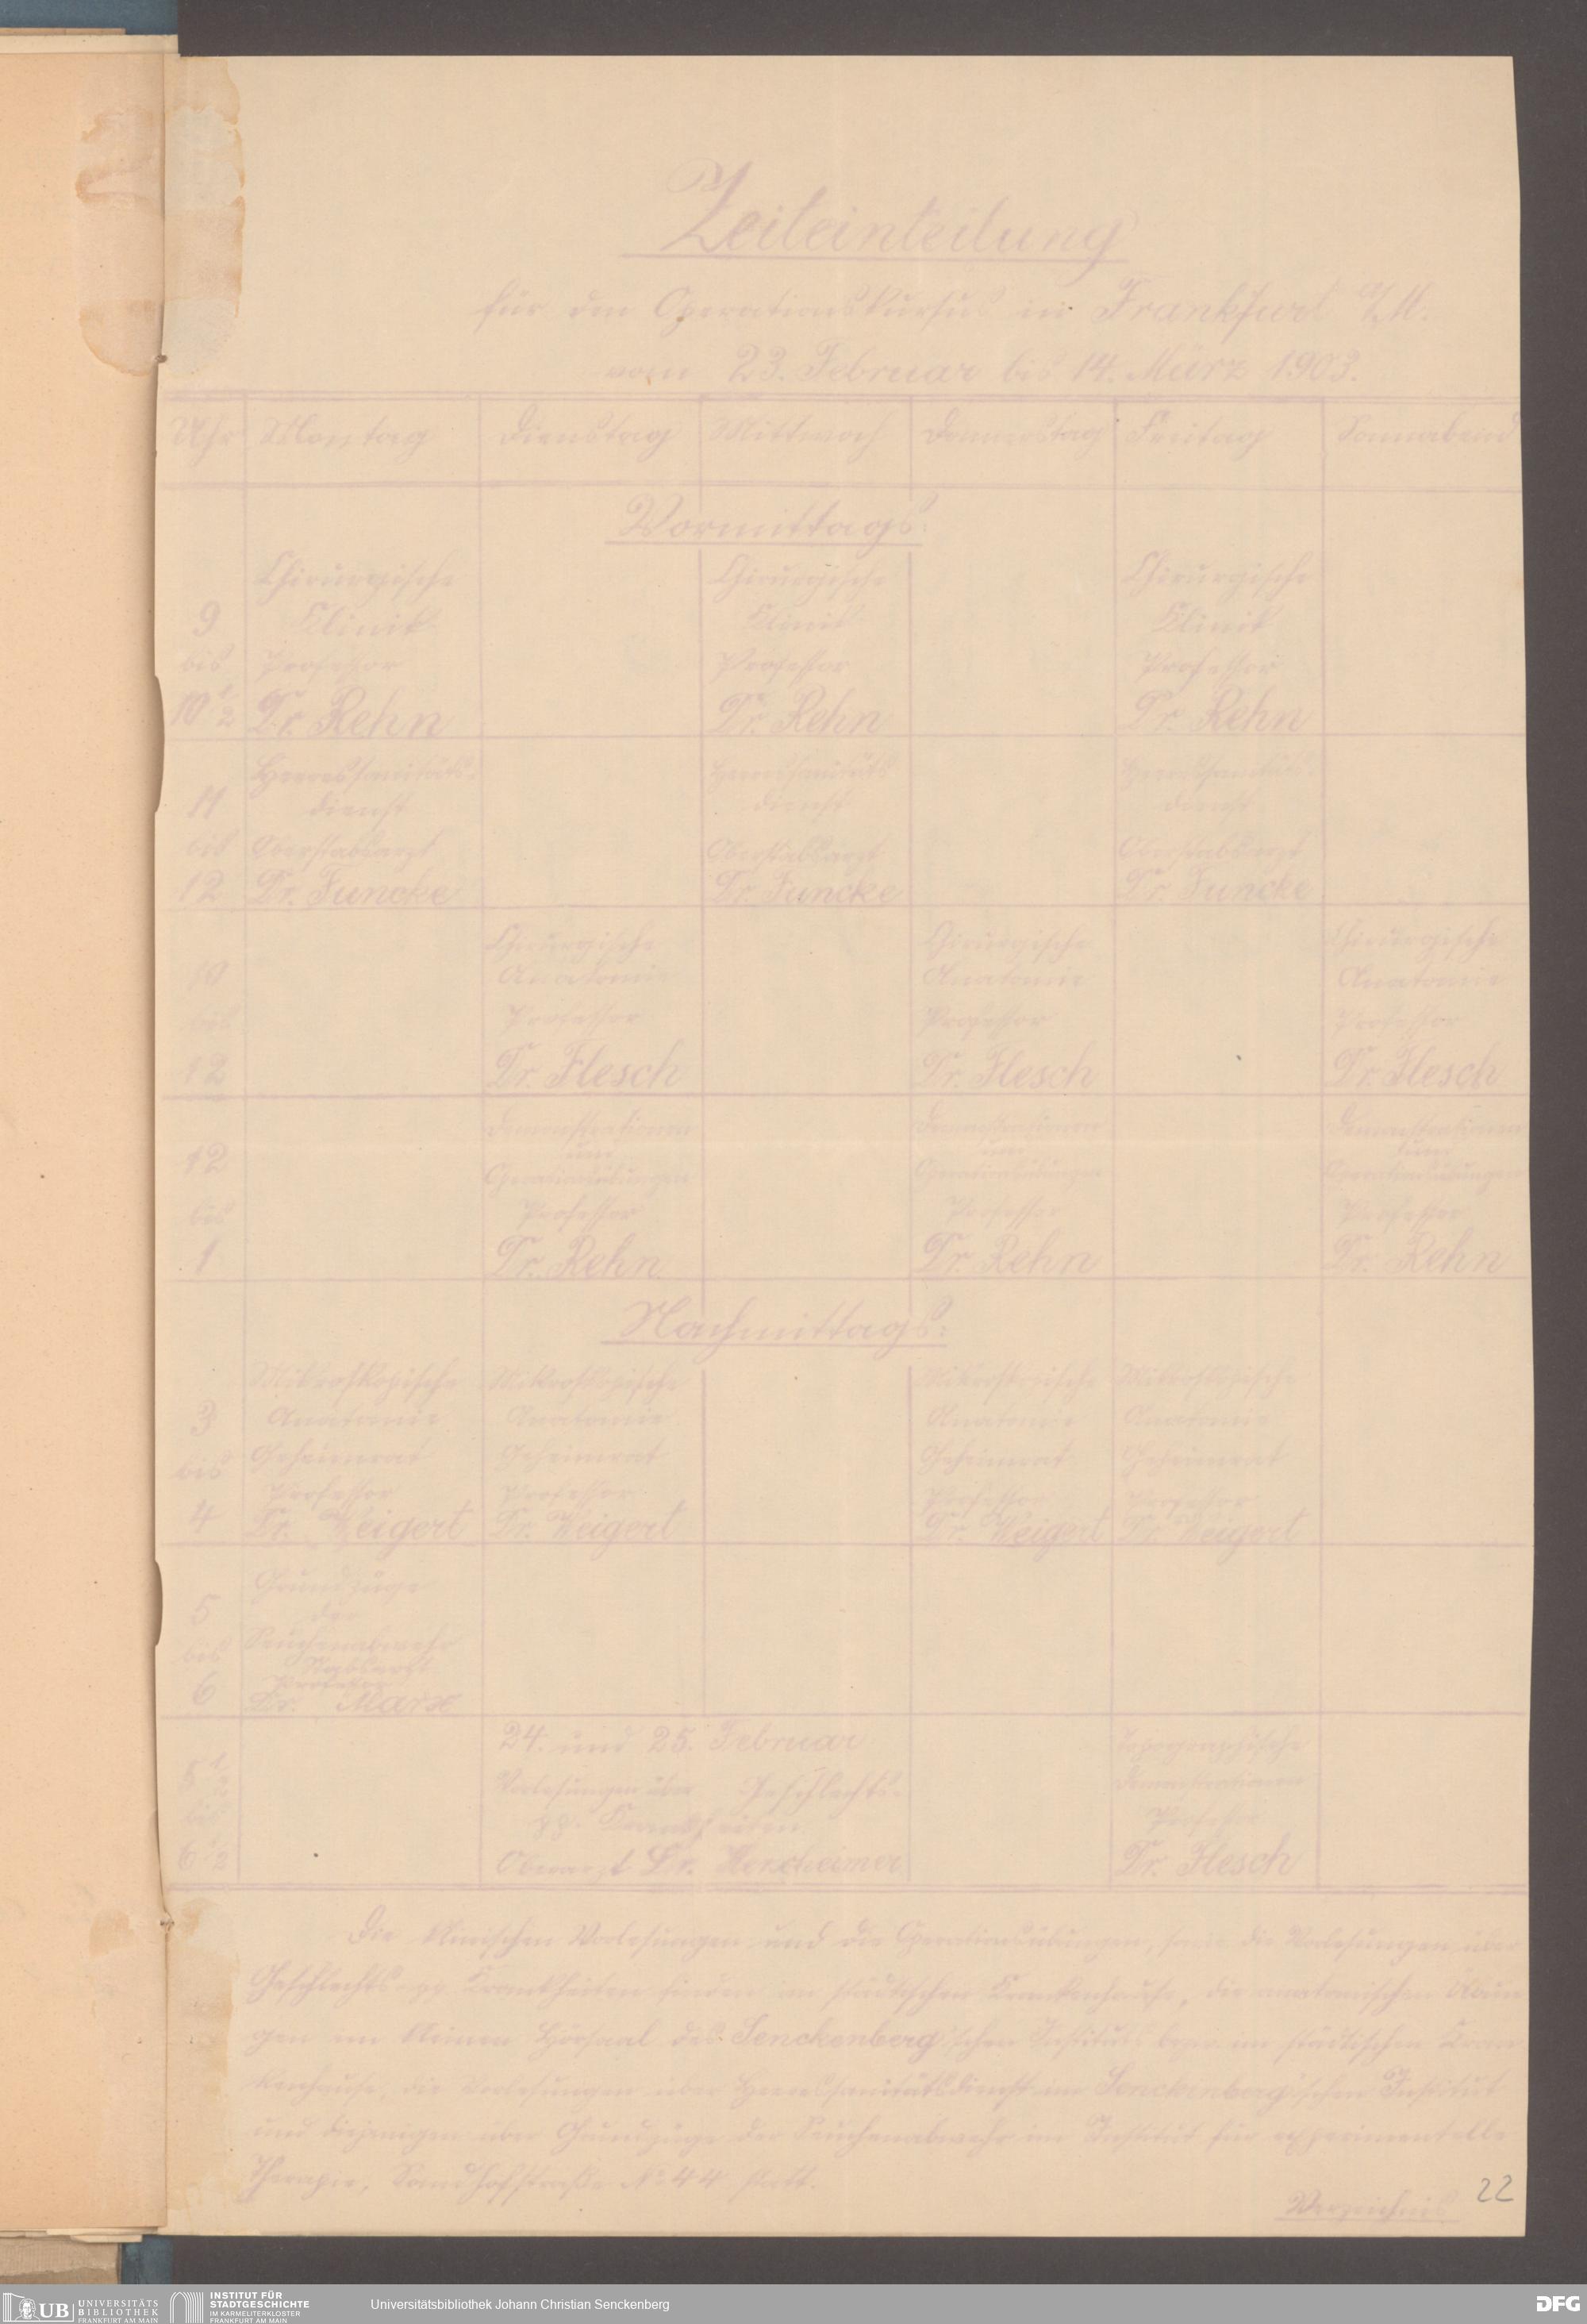 Zeiteinteilung
für den Operationskursus in Frankfurt a/M.
vom 23. Februar bis 14. März 1903.
Uhr Montag Dienstag Mittwoch Donnerstag Freitag Sonnabend
Vormittags:
Chirurgische Chirurgische Chirurgische
9 Klinik Klinik Klinik
bis Professor Professor Professor
10 1/2 Dr. Rehn Dr. Rehn Dr. Rehn
Heeressanitäts- Heeressanitäts Heeressanitäts
11 dienst dienst dienst
bis Oberstabsarzt Oberstabsarzt Oberstabsarzt
12 Dr. Funcke Dr. Funcke Dr. Funcke
Chirurgische Chirurgische Chirurgische
10 Anatomie Anatomie Anatomie
bis Professor Professor Professor
12 Dr. Flesch Dr. Flesch Dr. Flesch
Demonstrationen Demonstrationen Demonstrationen
12
Operationsübungen Operationsübungen Operationsübungen
bis Professor Professor Professor
1 Dr. Rehn Dr. Rehn Dr. Rehn
Nachmittags:
Mikroskopische Mikroskopische Mikroskopische Mikroskopische
3 Anatomie Anatomie Anatomie Anatomie
bis Geheimrat Geheimrat Geheimrat Geheimrat
Professor Professor Professor Professor
4 Dr. Weigert Dr. Weigert Dr. Weigert Dr. Weigert
Grundzüge
5 der
bis Seuchenabwehr
Stabsarzt
Professor
6 Dr. Marx
24. und 25. Februar Topographische
5 1/2 Vorlesungen über Geschlechts- Demonstrationen
bis pp. Krankheiten. Professor
6 1/2 Oberarzt Dr. Herxheimer Dr. Flesch
Die klinischen Vorlesungen und die Operationsübungen, sowie die Vorlesungen über
Geschlechts- pp. Krankheiten finden im städtischen Krankenhause, die anatomischen Übun
gen im kleinen Hörsaal des Senckenberg'schen Instituts bezw. im städtischen Kran
kenhause, die Vorlesungen über Heeressanitätsdienst im Senckenberg'schen Institut
und diejenigen über Grundzüge der Seuchenabwehr im Institut für experimentelle
Therapie, Sandhofstraße No 44 statt.
Verzeichnis
22
UB UNIVERSITÄTS
BIBLIOTHEK
FRANKFURT AM MAIN
INSTITUT FÜR
STADTGESCHICHTE
IM KARMELITERKLOSTER
FRANKFURT AM MAIN
Universitätsbibliothek Johann Christian Senckenberg
DFG